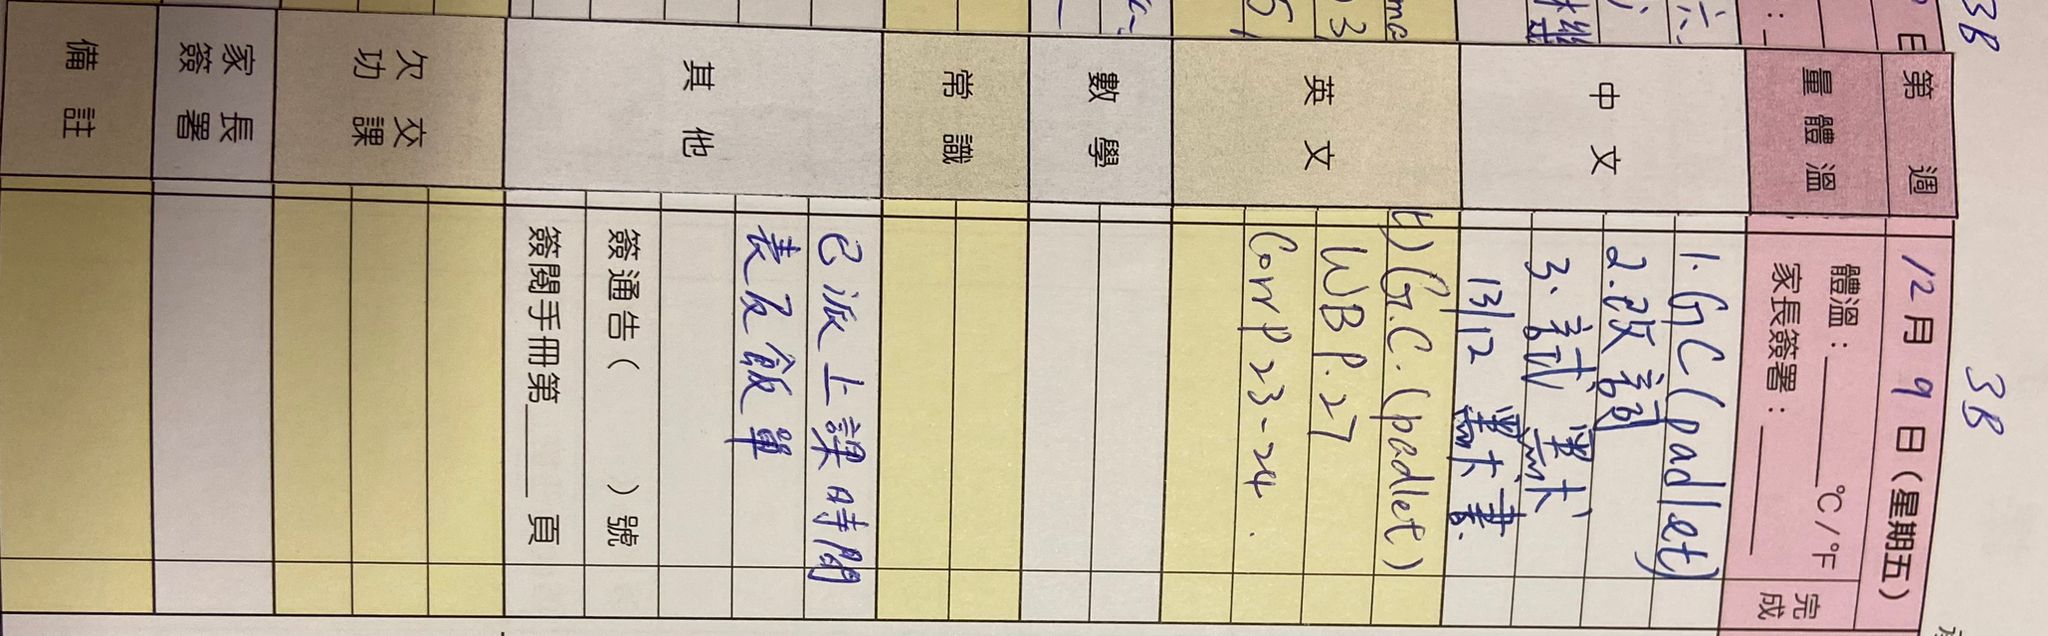 3B
3B
第 週 12月 9 日(星期五)
量體溫 體溫：____°C/°F 完成
家長簽署：____
中文 1. GC (padlet)
2. 改詞
3. 試默
13/12 默書
英文 G.C. (padlet)
WB P.27
Corr P 23-24.
數學
常識
其他 已派上課時間
表及飯單
簽通告( )號
簽閱手冊第____頁
欠交功課
家長簽署
備註